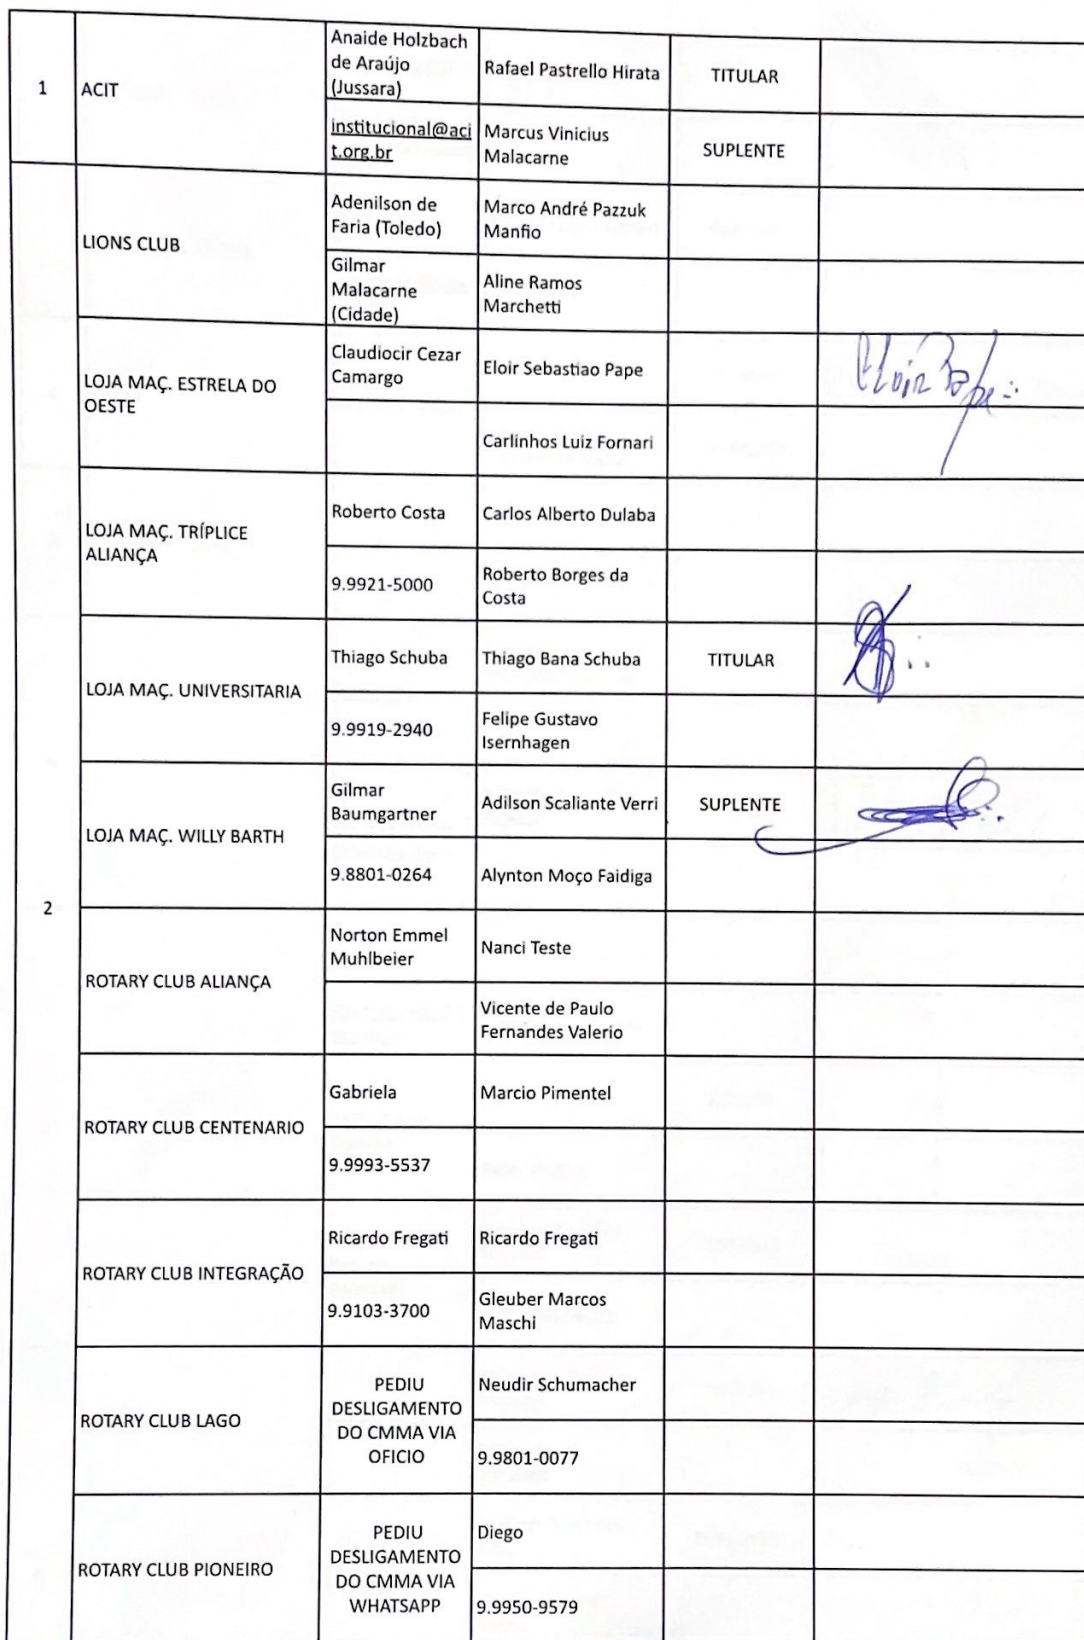 1
ACIT
Anaide Holzbach
de Araújo
(Jussara)
Rafael Pastrello Hirata
TITULAR
institucional@aci
t.org.br
Marcus Vinicius
Malacarne
SUPLENTE
2
LIONS CLUB
Adenilson de
Faria (Toledo)
Marco André Pazzuk
Manfio
Gilmar
Malacarne
(Cidade)
Aline Ramos
Marchetti
LOJA MAÇ. ESTRELA DO
OESTE
Claudiocir Cezar
Camargo
Eloir Sebastiao Pape
Eloir Pape
Carlinhos Luiz Fornari
LOJA MAÇ. TRÍPLICE
ALIANÇA
Roberto Costa
Carlos Alberto Dulaba
9.9921-5000
Roberto Borges da
Costa
LOJA MAÇ. UNIVERSITARIA
Thiago Schuba
Thiago Bana Schuba
TITULAR
9.9919-2940
Felipe Gustavo
Isernhagen
LOJA MAÇ. WILLY BARTH
Gilmar
Baumgartner
Adilson Scaliante Verri
SUPLENTE
9.8801-0264
Alynton Moço Faidiga
ROTARY CLUB ALIANÇA
Norton Emmel
Muhlbeier
Nanci Teste
Vicente de Paulo
Fernandes Valerio
ROTARY CLUB CENTENARIO
Gabriela
Marcio Pimentel
9.9993-5537
ROTARY CLUB INTEGRAÇÃO
Ricardo Fregati
Ricardo Fregati
9.9103-3700
Gleuber Marcos
Maschi
ROTARY CLUB LAGO
PEDIU
DESLIGAMENTO
DO CMMA VIA
OFICIO
Neudir Schumacher
9.9801-0077
ROTARY CLUB PIONEIRO
PEDIU
DESLIGAMENTO
DO CMMA VIA
WHATSAPP
Diego
9.9950-9579